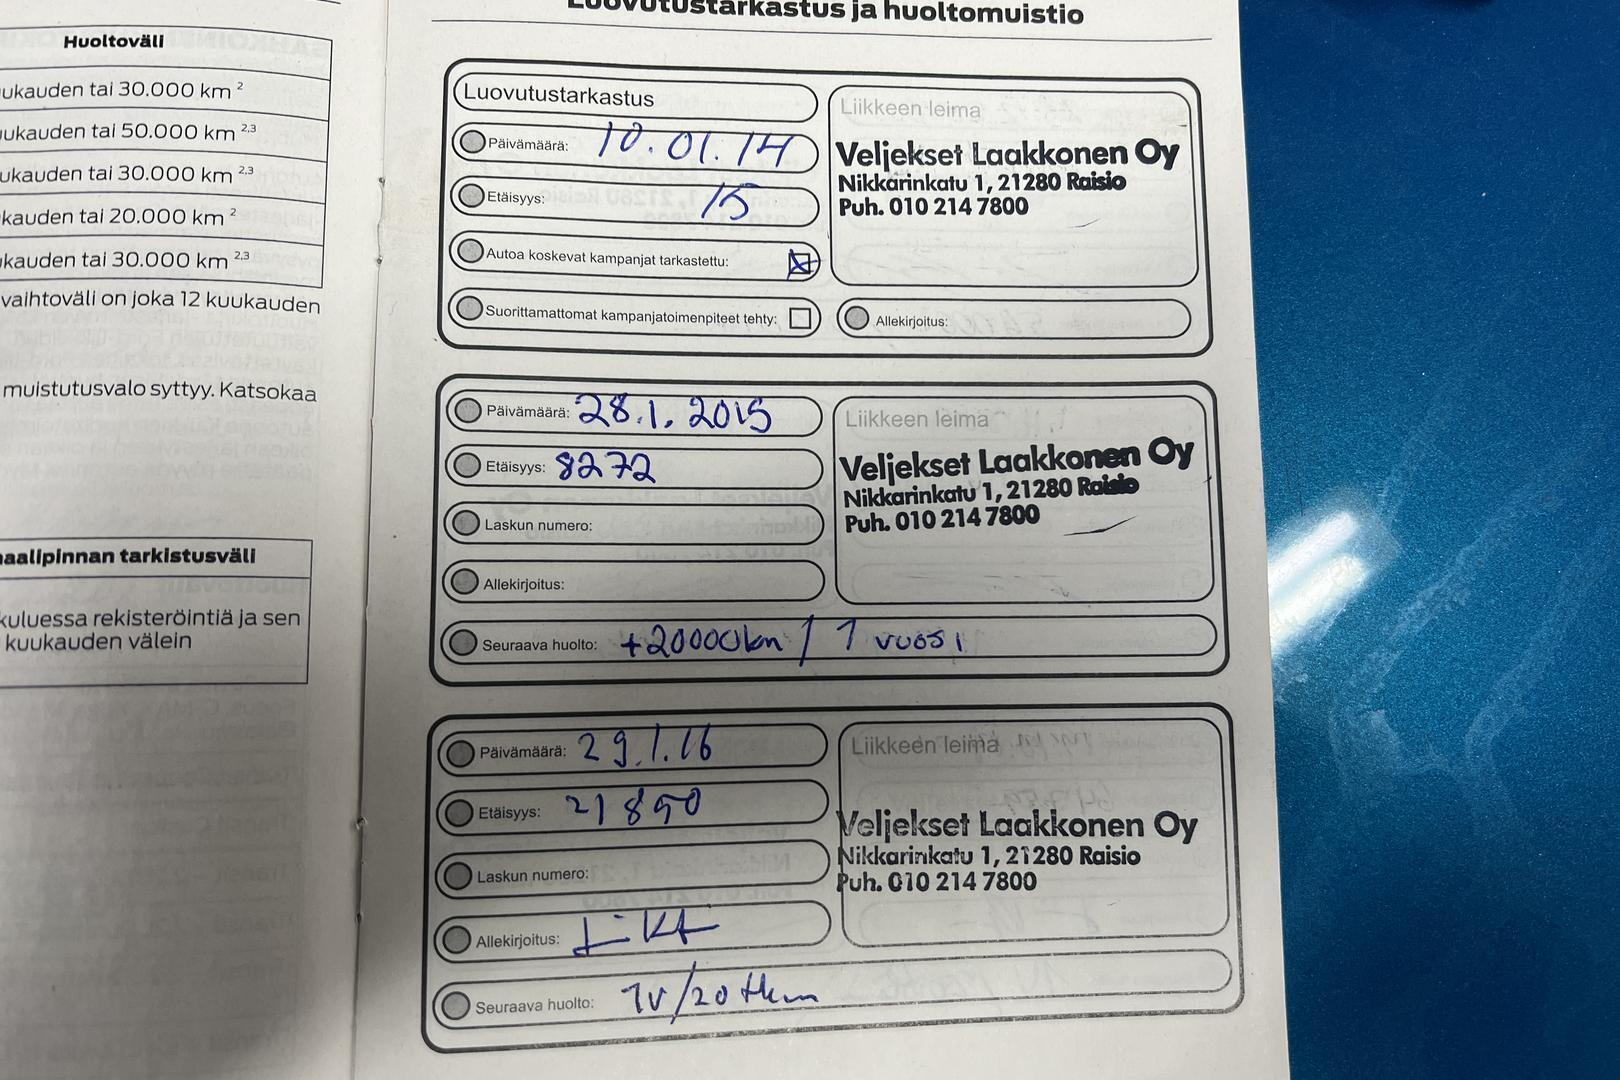 Huoltoväli
ukauden tai 30.000 km 2
ukauden tai 50.000 km 2,3
ukauden tai 30.000 km 2,3
kauden tai 20.000 km 2
kauden tai 30.000 km 2,3
vaihtoväli on joka 12 kuukauden
muistutusvalo syttyy. Katsokaa
naalipinnan tarkistusväli
kuluessa rekisteröintiä ja sen
kuukauden välein
Luovutustarkastus ja huoltomuistio
Luovutustarkastus
Päivämäärä: 10.01.14
Etäisyys: 15
Autoa koskevat kampanjat tarkastettu:
Suorittamattomat kampanjatoimenpiteet tehty:
Liikkeen leima
Veljekset Laakkonen Oy
Nikkarinkatu 1, 21280 Raisio
Puh. 010 214 7800
Allekirjoitus:
Päivämäärä: 28.1.2015
Etäisyys: 8272
Laskun numero:
Allekirjoitus:
Seuraava huolto: +20000km / 1 vuosi
Liikkeen leima
Veljekset Laakkonen Oy
Nikkarinkatu 1, 21280 Raisio
Puh. 010 214 7800
Päivämäärä: 29.1.16
Etäisyys: 21890
Laskun numero:
Allekirjoitus:
Seuraava huolto: 1v/20 tkm
Liikkeen leima
Veljekset Laakkonen Oy
Nikkarinkatu 1, 21280 Raisio
Puh. 010 214 7800